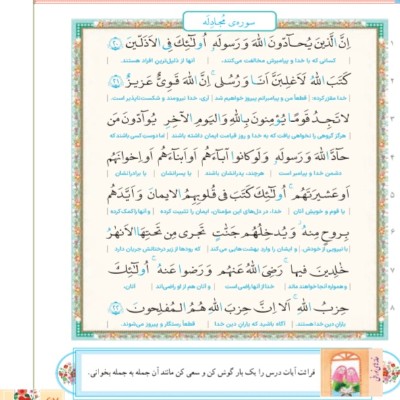 سوره‌ی مُجادِلَه
اِنَّ الَّذینَ یُحآدّونَ اللهَ وَ رَسولَهو اُولٰئِکَ فِی الاَذَلّینَ ﴿٢٠﴾
کسانی که با خدا و پیامبرش مخالفت می‌کنند، آنها از ذلیل‌ترین افراد هستند.
کَتَبَ اللهُ لَاَغلِبَنَّ اَنَا وَ رُسُلی اِنَّ اللهَ قَویٌّ عَزیزٌ ﴿٢١﴾
خدا مقرّر کرده: قطعاً من و پیامبرانم پیروز خواهیم شد آری، خدا نیرومند و شکست‌ناپذیر است.
لا تَجِدُ قَومًا یُؤمِنونَ بِاللهِ وَ الیَومِ الآخِرِ یُوآدّونَ مَن
هرگز گروهی را نخواهی یافت که به خدا و روز قیامت ایمان داشته باشند امّا دوست کسی باشند که
حآدَّ اللهَ وَ رَسولَهو وَ لَو کانوا آبآءَهُم اَو اَبنآءَهُم اَو اِخوانَهُم
دشمن خدا و پیامبر است هرچند، پدرانشان باشند یا پسرانشان یا برادرانشان
اَو عَشیرَتَهُم اُولٰئِکَ کَتَبَ فی قُلوبِهِمُ الایمانَ وَ اَیَّدَهُم
یا قوم و خویش آنان خدا، در دل‌های این مؤمنان، ایمان را تثبیت کرده و آنها را کمک کرده
بِروحٍ مِنهُ وَ یُدخِلُهُم جَنّاتٍ تَجری مِن تَحتِهَا الاَنهٰرُ
با نیرویی از خودش، و ایشان را وارد بهشت‌هایی می‌کند که رودها از زیر درختانش جریان دارد
خٰلِدینَ فیها رَضِیَ اللهُ عَنهُم وَ رَضوا عَنهُ اُولٰئِکَ
و همواره آنجا خواهند ماند خدا از آنها راضی است و آنان هم از او راضی‌اند آنان،
حِزبُ اللهِ اَلا اِنَّ حِزبَ اللهِ هُمُ المُفلِحونَ ﴿٢٢﴾
یاران دین خدا هستند. آگاه باشید که یاران دین خدا قطعاً رستگار و پیروز می‌شوند.
قرائت آیات درس را یک بار گوش کن و سعی کن مانند آن جمله به جمله بخوانی.